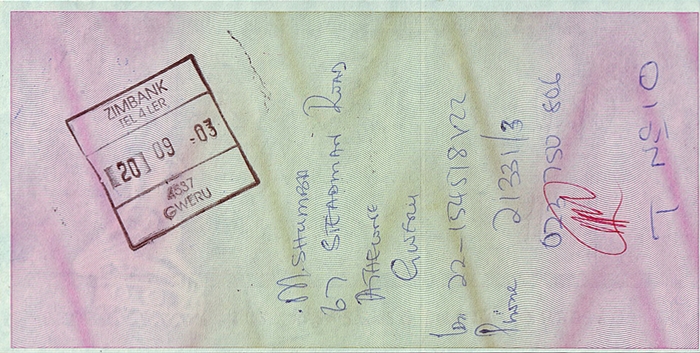 ZIMBANK
TEL 4LER
[20] 09 -03
4537
GWERU
M. SHUMBA
67 STEADMAN ROAD
ATHLONE
GWERU
22-154518 V22
Phone 21331/3
023 750 806